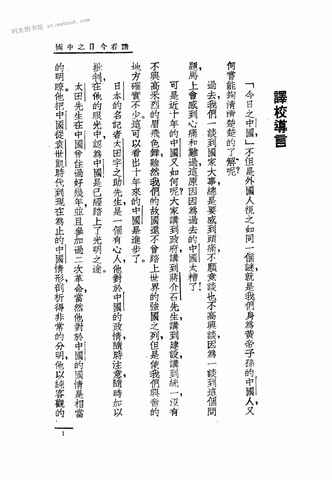 國中之日今看請
譯校導言
「今日之中國」不但是外國人視之如同一個謎就是我們身為黃帝子孫的中國人又
何嘗能夠清清楚楚的了解呢?
過去我們一談到國家大事總是要感到頭痛不願意談也不高興談因為一談到這個問
題馬上會感到心痛和難過這原因因為過去的中國太糟了!
可是近十年的中國又如何呢?大家講到政府講到蔣介石先生講到建設講到統一沒有
不興高采烈的眉飛色舞雖然我們的故國還不曾踏上世界的強國之列但是使我們興奮的
地方確實不少這可以看出十年來的中國是進步了。
日本的名記者太田宇之助先生是一個有心人他對於中國的政情隨時注意隨時加以
批判在他的眼光中認為中國是已經踏上了光明之途。
太田先生在中國曾住過好幾年並且參加過二次革命當然他對於中國的情是相當
的明瞭他把中國從袁世凱時代到現在為止的中國情形剖析得非常的分明他以純客觀的
1